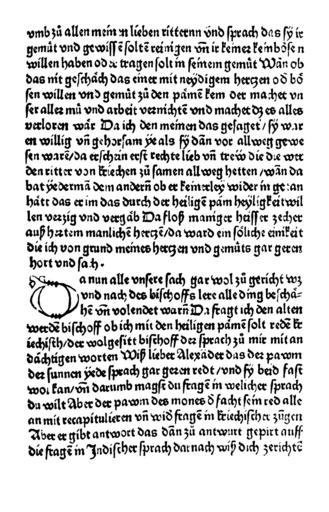 vmb zů allen meinen lieben ritternn vnd sprach das sy ir
gemůt vnd gewissẽ soltẽ reinigen vñ ir keiner keinbösen
willen haben od̛ tragen solt in seinem gemůt Wañ ob
das nit geschäch das einer mit neydigem hertzen od̛ bö
sen willen vnd gemůt zů den pämẽ kem der machet vn
ser aller mů vnd arbeit vernichtẽ vnd machet dz es alles
verloren wär Da ich den meinen das gesaget / sy waren
willig vñ gehorsam yе als sy dañ vor allweg gewe
sen warẽ / da erschein erst rechte lieb vñ trew die die wer
den ritter von kriechen zů samen allweg hetten / wañ da
bat yederman dem andern ob er keinerley wider in getan
hätt das er im das durch der heiligẽ päm heyligkeit wil
len verzig vnd vergäb Da floß maniger heisser zecher
auß hertem manlichẽ hertzẽ / da ward ein söliche einikeit
die ich von grund meines hertzen vnd gemůts gar geren
hort vnd sach.
Da nun alle vnsere sach gar wol zů gericht wz
vnd nach des bischoffs lere alle ding beschä
hẽ vñ volendet warñ Da fragt ich den alten
werdẽ bischoff ob ich mit den heiligen pämẽ solt redẽ k
riechisch / der wolgesitt bischoff der sprach zů mir mit an
dächtigen worten Wiß lieber Alexäder das der pawm
der sunnen yede sprach gar geren redt / vnd sy beid fast
wol kan / vñ darumb magst du fragẽ in welicher sprach
du wilt Aber der pawm des mones d̛ facht sein red alle
an mit recapitulieren vñ wid̛ fragẽ in kriechischer zũgen
Aber er gibt antwort das dañ zů antwurt gepirt auff
die fragẽ in Jndischer sprach darnach wiß dich zerichtẽ